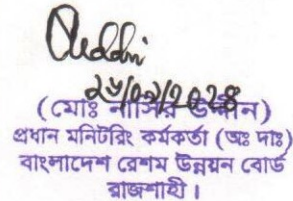 ২৮/০২/২০২৪
(মোঃ নাসির উদ্দীন)
প্রধান মনিটরিং কর্মকর্তা (অঃ দাঃ)
বাংলাদেশ রেশম উন্নয়ন বোর্ড
রাজশাহী।